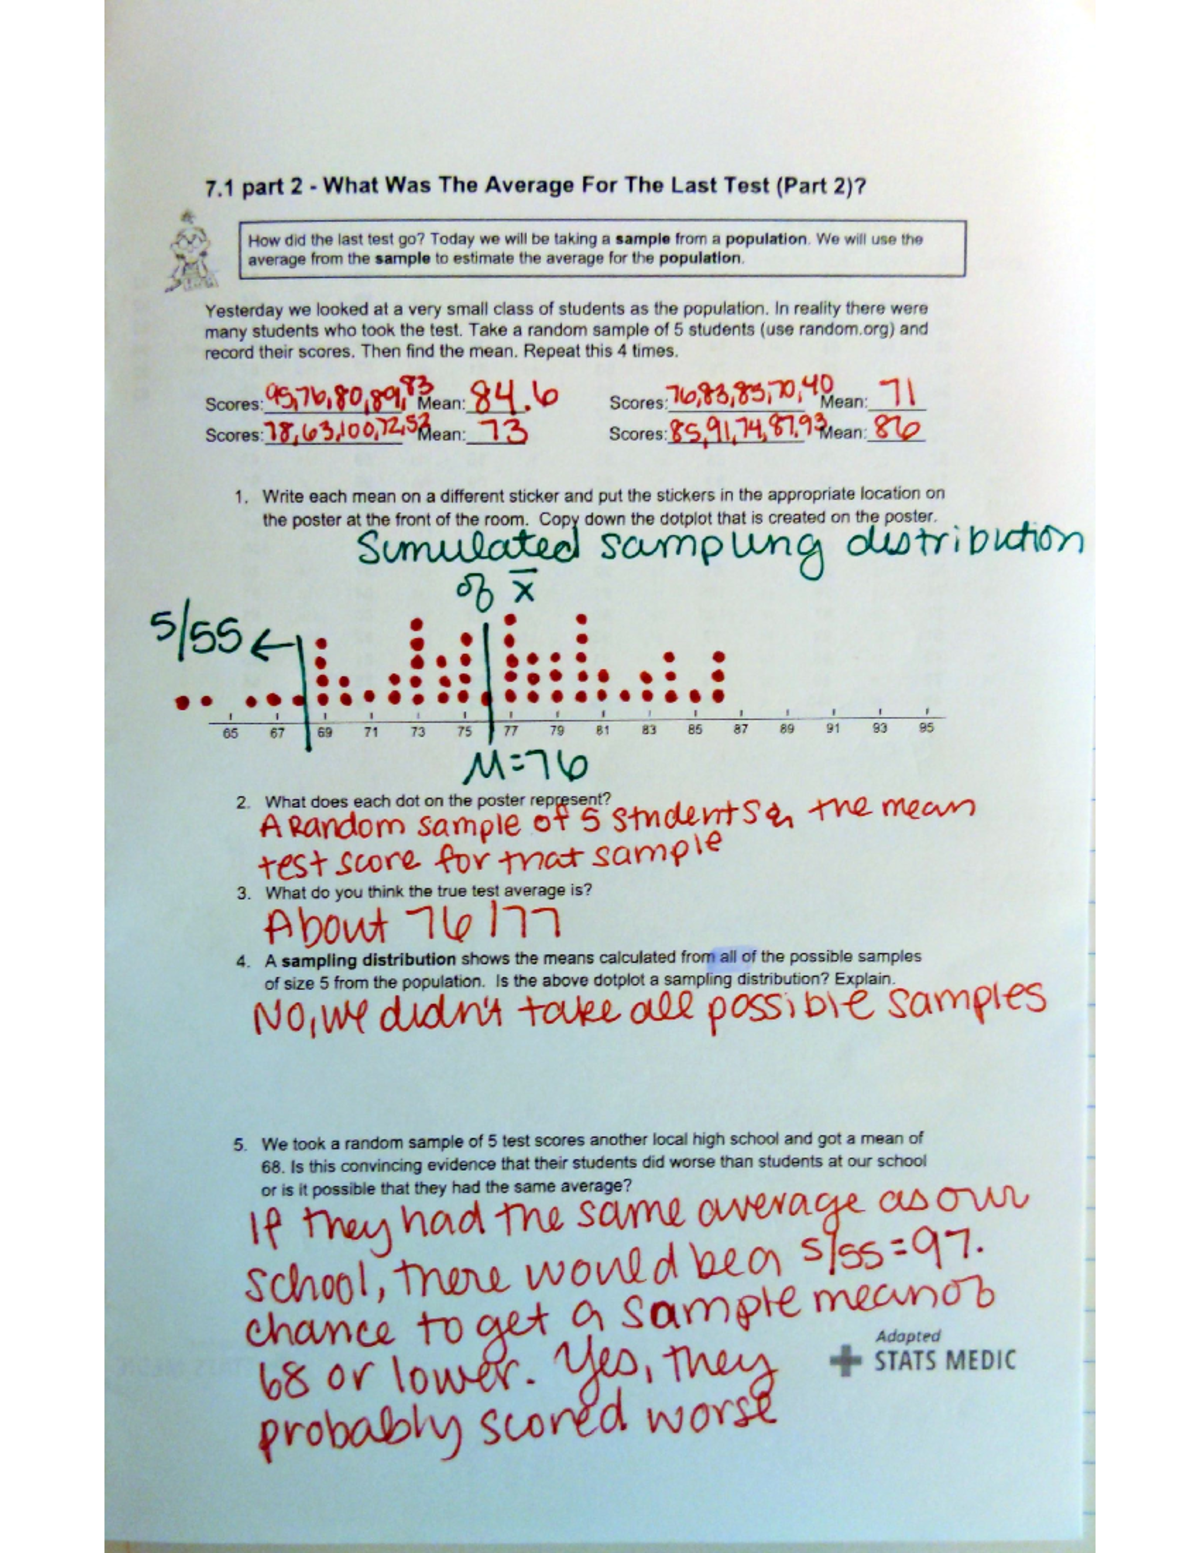 7.1 part 2 - What Was The Average For The Last Test (Part 2)?
How did the last test go? Today we will be taking a sample from a population. We will use the
average from the sample to estimate the average for the population.
Yesterday we looked at a very small class of students as the population. In reality there were
many students who took the test. Take a random sample of 5 students (use random.org) and
record their scores. Then find the mean. Repeat this 4 times.
Scores: 95,76,80,89,83 Mean: 84.6 Scores: 76,83,85,70,40 Mean: 71
Scores: 78,63,100,72,52 Mean: 73 Scores: 85,91,74,87,93 Mean: 86
1. Write each mean on a different sticker and put the stickers in the appropriate location on
the poster at the front of the room. Copy down the dotplot that is created on the poster.
Simulated sampling distribution
of x̄
5/55 ←
65 67 69 71 73 75 77 79 81 83 85 87 89 91 93 95
M=76
2. What does each dot on the poster represent?
A Random sample of 5 students & the mean
test score for that sample
3. What do you think the true test average is?
About 76/77
4. A sampling distribution shows the means calculated from all of the possible samples
of size 5 from the population. Is the above dotplot a sampling distribution? Explain.
No, we didn't take all possible samples
5. We took a random sample of 5 test scores another local high school and got a mean of
68. Is this convincing evidence that their students did worse than students at our school
or is it possible that they had the same average?
If they had the same average as our
school, there would be a 5/55=97.
chance to get a sample mean of
68 or lower. Yes, they
probably scored worse
Adapted
STATS MEDIC